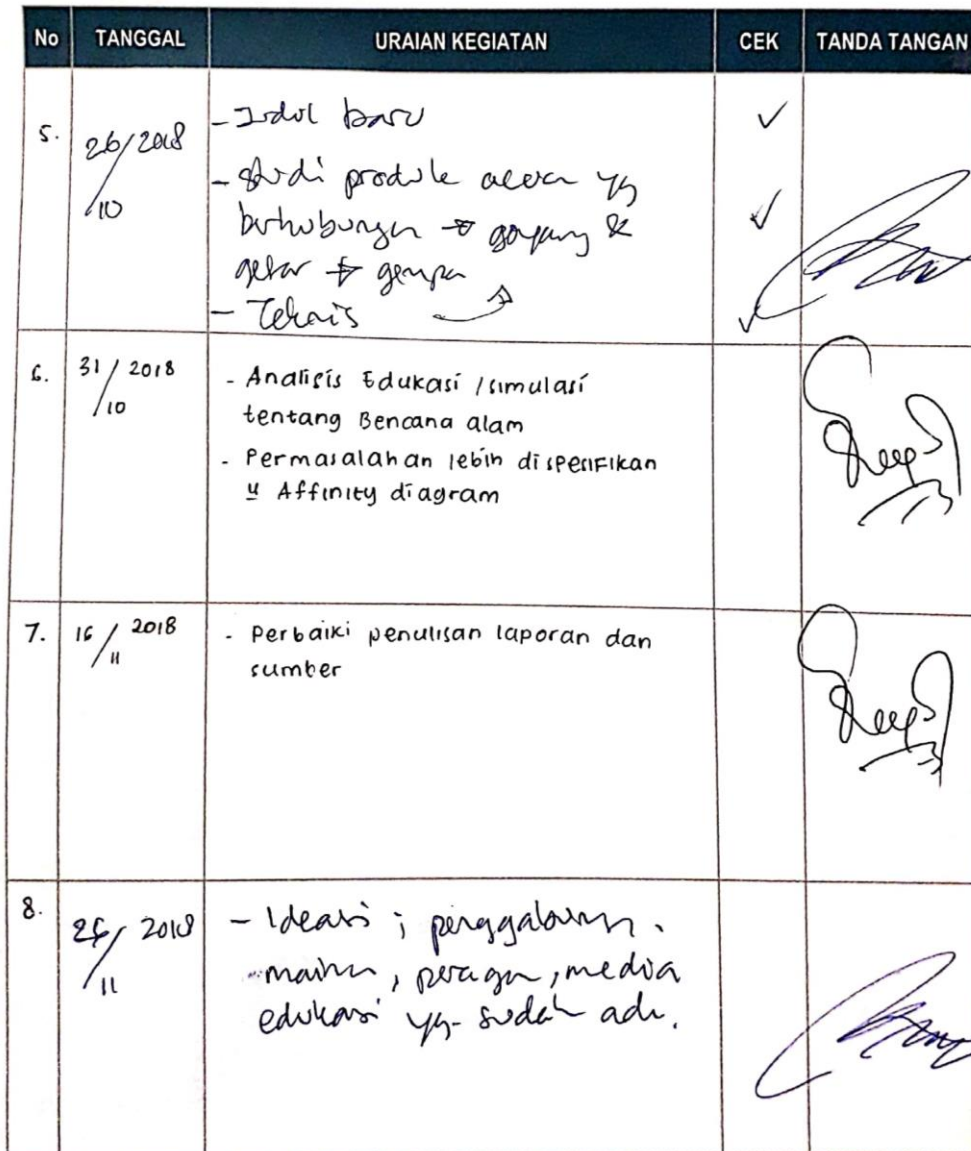 No TANGGAL URAIAN KEGIATAN CEK TANDA TANGAN
5. 26/10 2018
- Judul baru
- studi produk acuan yg
berhubungan → goyang &
getar → gempa
- Teknis
6. 31/10 2018
- Analisis Edukasi / simulasi
tentang Bencana alam
- Permasalahan lebih dispesifikan
u Affinity diagram
7. 16/11 2018
- Perbaiki penulisan laporan dan
sumber
8. /11 2018
- Ideasi ;
, peraga, media
edukasi yg sudah ada.